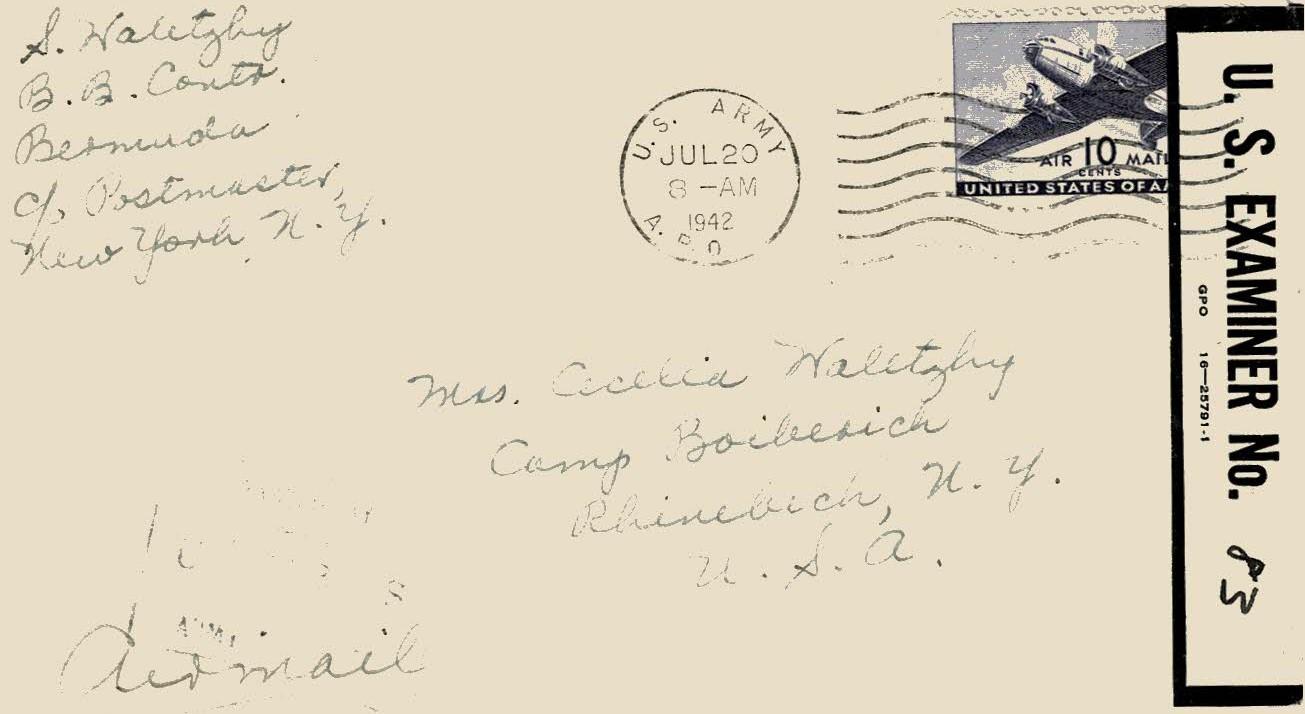 S. Waletzky
B. B. Contr.
Bermuda
c/o Postmaster,
New York N. Y.
U.S. ARMY
JUL 20
8 -AM
1942
A.P.O
AIR 10 MAIL
CENTS
UNITED STATES OF A
U. S. EXAMINER No. 83
GPO 16—25791-1
Mrs. Cecelia Waletzky
Camp Boiberich
Rhinebeck, N. Y.
U. S. A.
Air mail